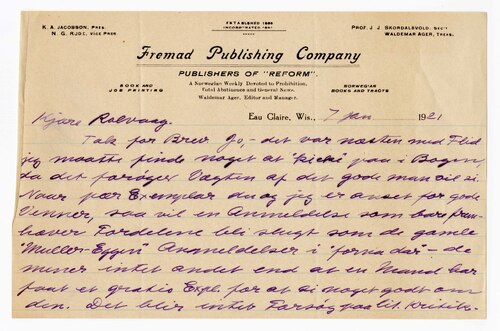 K. A. JACOBSON, PRES.
N. G. RJOE, VICE PRES
ESTABLISHED 1886
INCORPORATED 1891
PROF. J. J. SKORDALSVOLD, SEC'Y
WALDEMAR AGER, TREAS.
Fremad Publishing Company
PUBLISHERS OF "REFORM".
A Norwegian Weekly Devoted to Prohibition,
Total Abstinence and General News.
Waldemar Ager, Editor and Manager.
BOOK AND
JOB PRINTING
NORWEGIAN
BOOKS AND TRACTS
Eau Claire, Wis., 7 jan 1921
Kjære Rolvaag.
Tak for Brev. Jo, - det var næsten med Flid
jeg maatte finde noget at "kicke" paa i Bogen,
da det forøger Vægten af det gode man vil si.
Naar pr Exemplar du og jeg er anset for gode
Venner, saa vil en Anmeldelse som bare frem-
hæver Fordelene bli slugt som de gamle
"Muller-Eggen" Anmeldelser i "forna dar" - de
mener intet andet end at en Mand har
faat et gratis Expl. for at si noget godt om
den. Det blir intet Forsøg paa lit. Kritik.